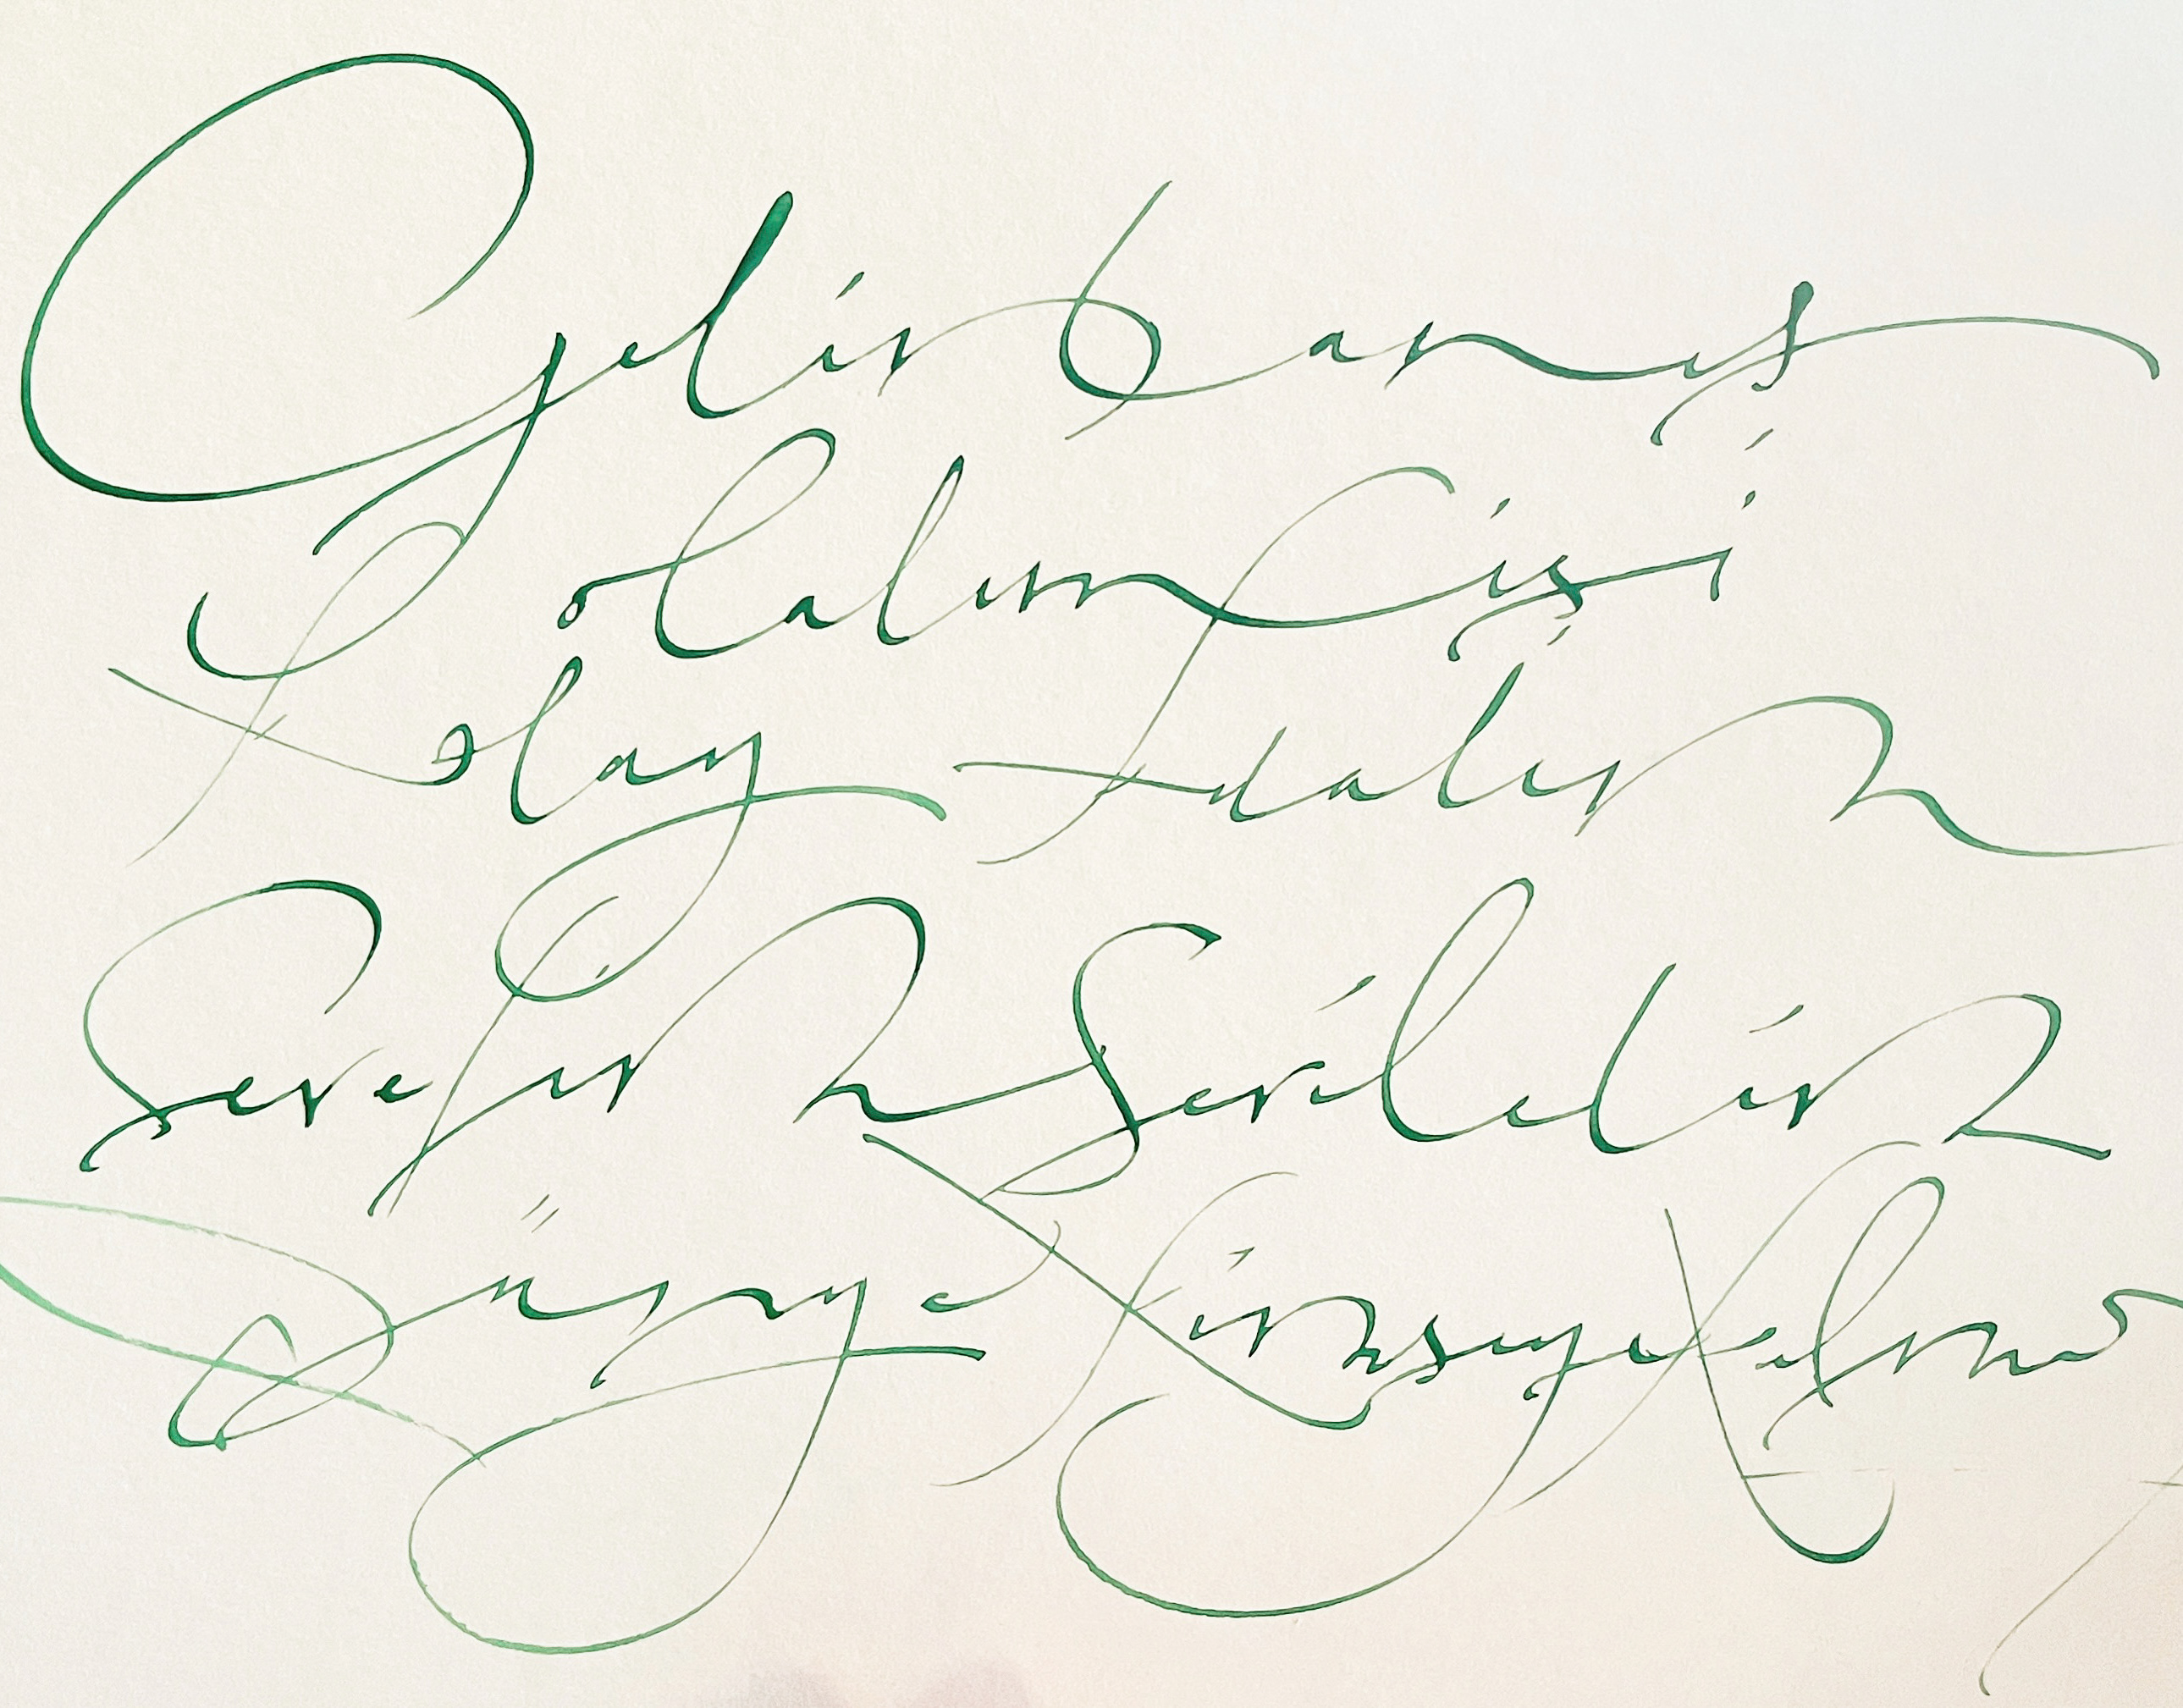 Gelin tanış
olalım işi
Kolay Kılalım
Sevelim Sevilelim
Dünya Kimseye Kalmaz